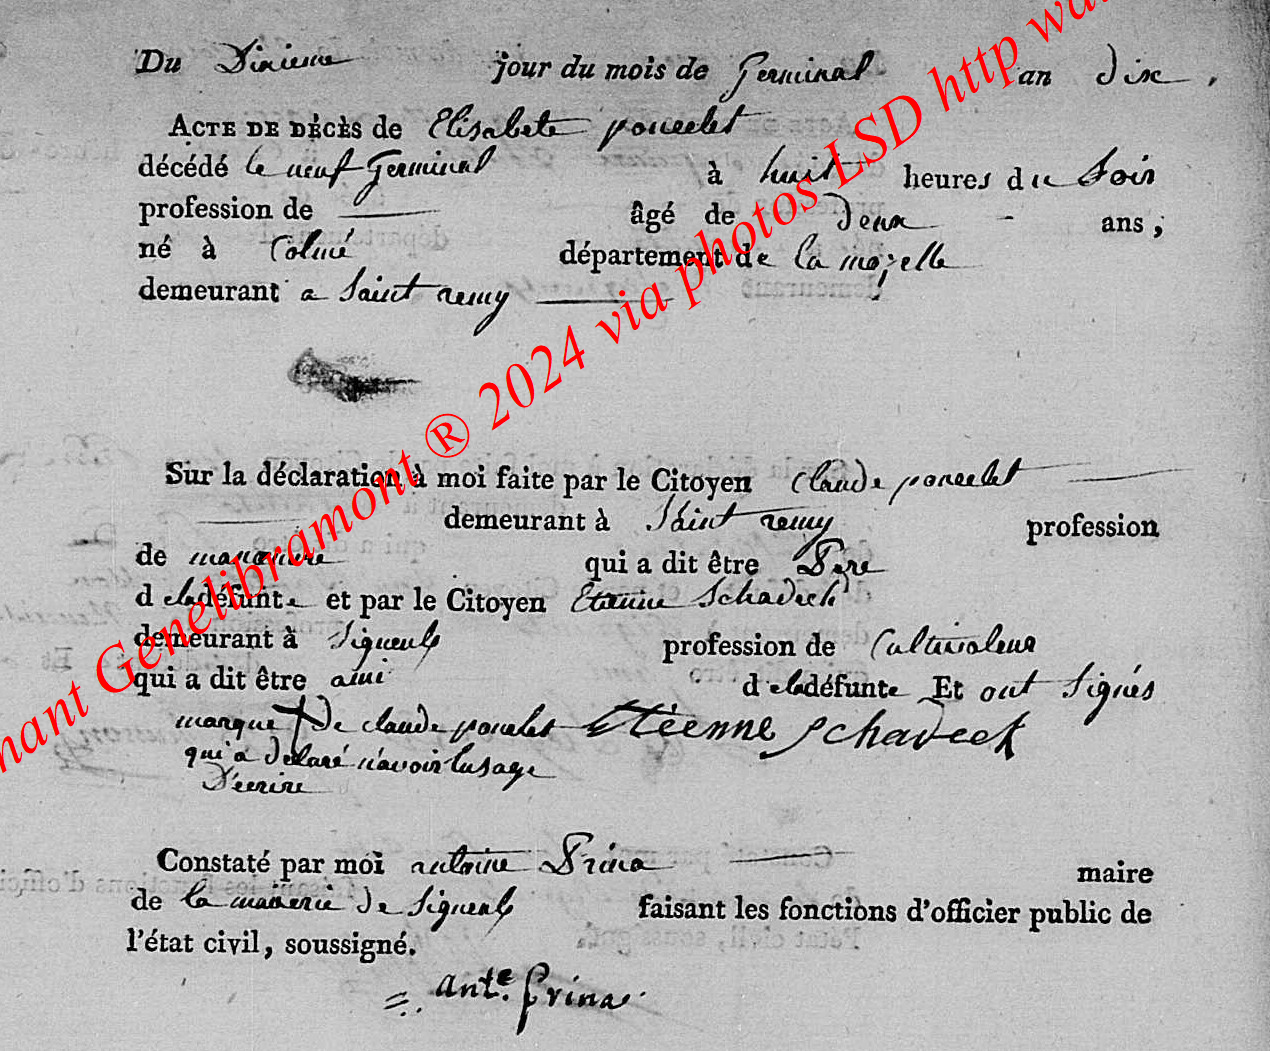 Du Dixieme jour du mois de Germinal an dix.
ACTE DE DÉCÈS de Elisabete poncelet
décédé le neuf Germinal à huit heures du Soir
profession de âgé de Deux ans ;
né à Colmé département de la mozelle
demeurant a Saint remy
Sur la déclaration à moi faite par le Citoyen claude poncelet
demeurant à Saint remy profession
de manœuvre qui a dit être Pere
d eladéfunte et par le Citoyen Etienne Schadeck
demeurant à Signeulx profession de Cultivateur
qui a dit être ami d eladéfunte Et ont Signés
marque De claude poncelet Etéenne Schadeck
qui a Déclaré n'avoir lusage
D'ecrire
Constaté par moi antoine Prina maire
de la mairie de Signeulx faisant les fonctions d'officier public de
l'état civil, soussigné.
ant.e Prina
nant Genelibramont ® 2024 via photos LSD http wa